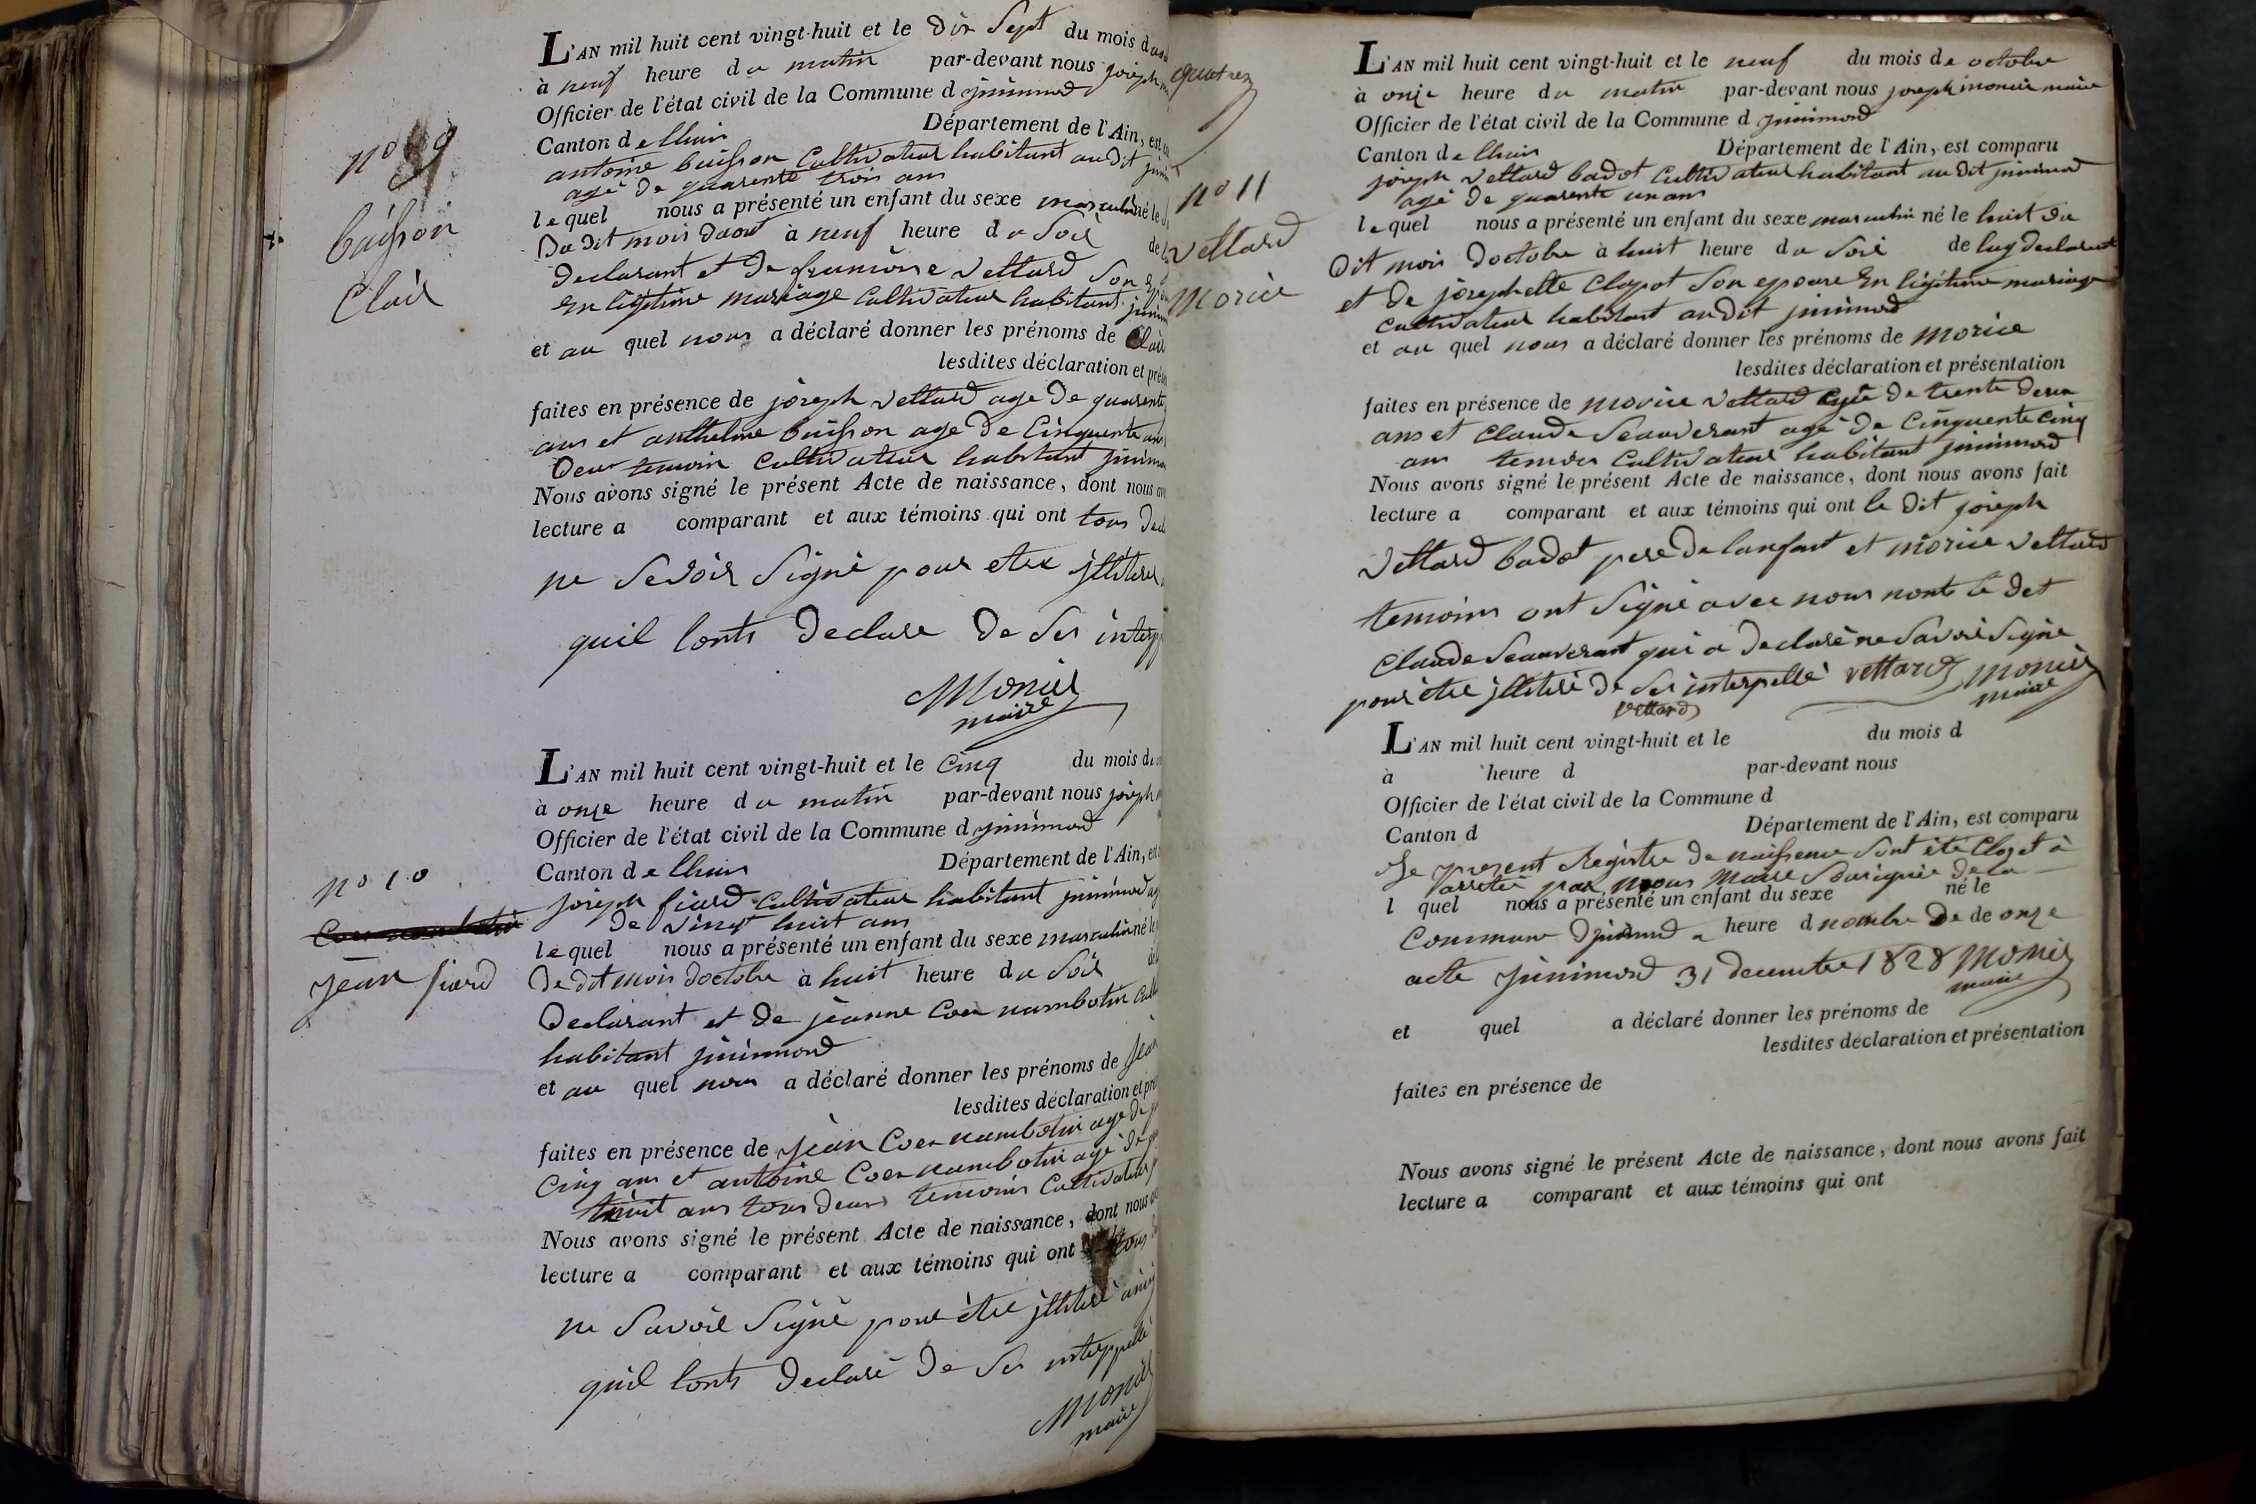 L'AN mil huit cent vingt-huit et le dix Sept du mois daout
à neuf heure du matin par-devant nous joseph
Officier de l'état civil de la Commune d jnnimond
Canton de lhuis Département de l'Ain, est
antoine buisson Cultivateur habitant au dit
agé de quarente trois ans
le quel nous a présenté un enfant du sexe masculin né le
du dit mois daout à neuf heure du Soir de
declarant et de Vettard Son
En légitime mariage Cultivateur habitant
et au quel nous a déclaré donner les prénoms de Clair
lesdites déclaration et
faites en présence de joseph Vettard age de quarente
ans et anthelme buisson age de Cinquente ans
Deux temoin Cultivateur habitant
Nous avons signé le présent Acte de naissance, dont nous
lecture a comparant et aux témoins qui ont tous
ne Savoir Signé pour etre jllitéré
quil lonts Declare De Ses
Monier
maire
n° 9
buisson
Clair
L'AN mil huit cent vingt-huit et le Cinq du mois d
à onze heure du matin par-devant nous joseph
Officier de l'état civil de la Commune d jnnimond
Canton de lhuis Département de l'Ain,
joseph fiard Cultivateur habitant jnnimond
de Vingt huit ans
le quel nous a présenté un enfant du sexe masculin né le
De dit mois doctobre à huit heure du Soir
Declarant et de jeanne Coer nambotin
habitant jnnimond
et au quel nous a déclaré donner les prénoms de jean
lesdites déclaration et
faites en présence de jean Coer nambotin age de
Cinq ans et antoine Coer nambotin agé de
ans tous deux temoins Cultivateur
Nous avons signé le présent Acte de naissance, dont nous
lecture a comparant et aux témoins qui ont tous
ne Savoir Signé pour être jllitéré
quil lonts Declaré De Ses interppellé
Monier
maire
n° 10
jean fiard
n° 11
Vettard
morice
L'AN mil huit cent vingt-huit et le neuf du mois de octobre
à onze heure du matin par-devant nous joseph monier maire
Officier de l'état civil de la Commune d jnnimond
Canton de lhuis Département de l'Ain, est comparu
joseph Vettard badot Cultivateur habitant au dit jnnimond
agé de quarente un ans
le quel nous a présenté un enfant du sexe masculin né le huit du
Dit mois Doctobre à huit heure du Soir de luy declarant
et de josephette Clapot Son epouse En légitime mariage
Cultivateur habitant au dit jnnimond
et au quel nous a déclaré donner les prénoms de morice
lesdites déclaration et présentation
faites en présence de morice Vettard agé de trente deux
ans et Claude Seauverant agé de Cinquente Cinq
ans temoin Cultivateur habitant jnnimond
Nous avons signé le présent Acte de naissance, dont nous avons fait
lecture a comparant et aux témoins qui ont le dit joseph
Vettard badot pere de lanfant et morice Vettard
temoins ont Signé avec nous nonts le dit
Claude Seauverant qui a Declaré ne Savoir Signe
pour être jllitéré de Ses interpellé Vettard Monier
maire
Vettard
L'AN mil huit cent vingt-huit et le du mois d
à heure d par-devant nous
Officier de l'état civil de la Commune d
Canton d Département de l'Ain, est comparu
Le present Registre de naissence Sont été Clos et à
arretée par nous Maire Sousigné de la
l quel nous a présenté un enfant du sexe né le
Commune djnnimond a heure d nombre de de onze
acte jnnimond 31 decembre 1828 Monier
maire
et quel a déclaré donner les prénoms de
lesdites déclaration et présentation
faites en présence de
Nous avons signé le présent Acte de naissance, dont nous avons fait
lecture a comparant et aux témoins qui ont